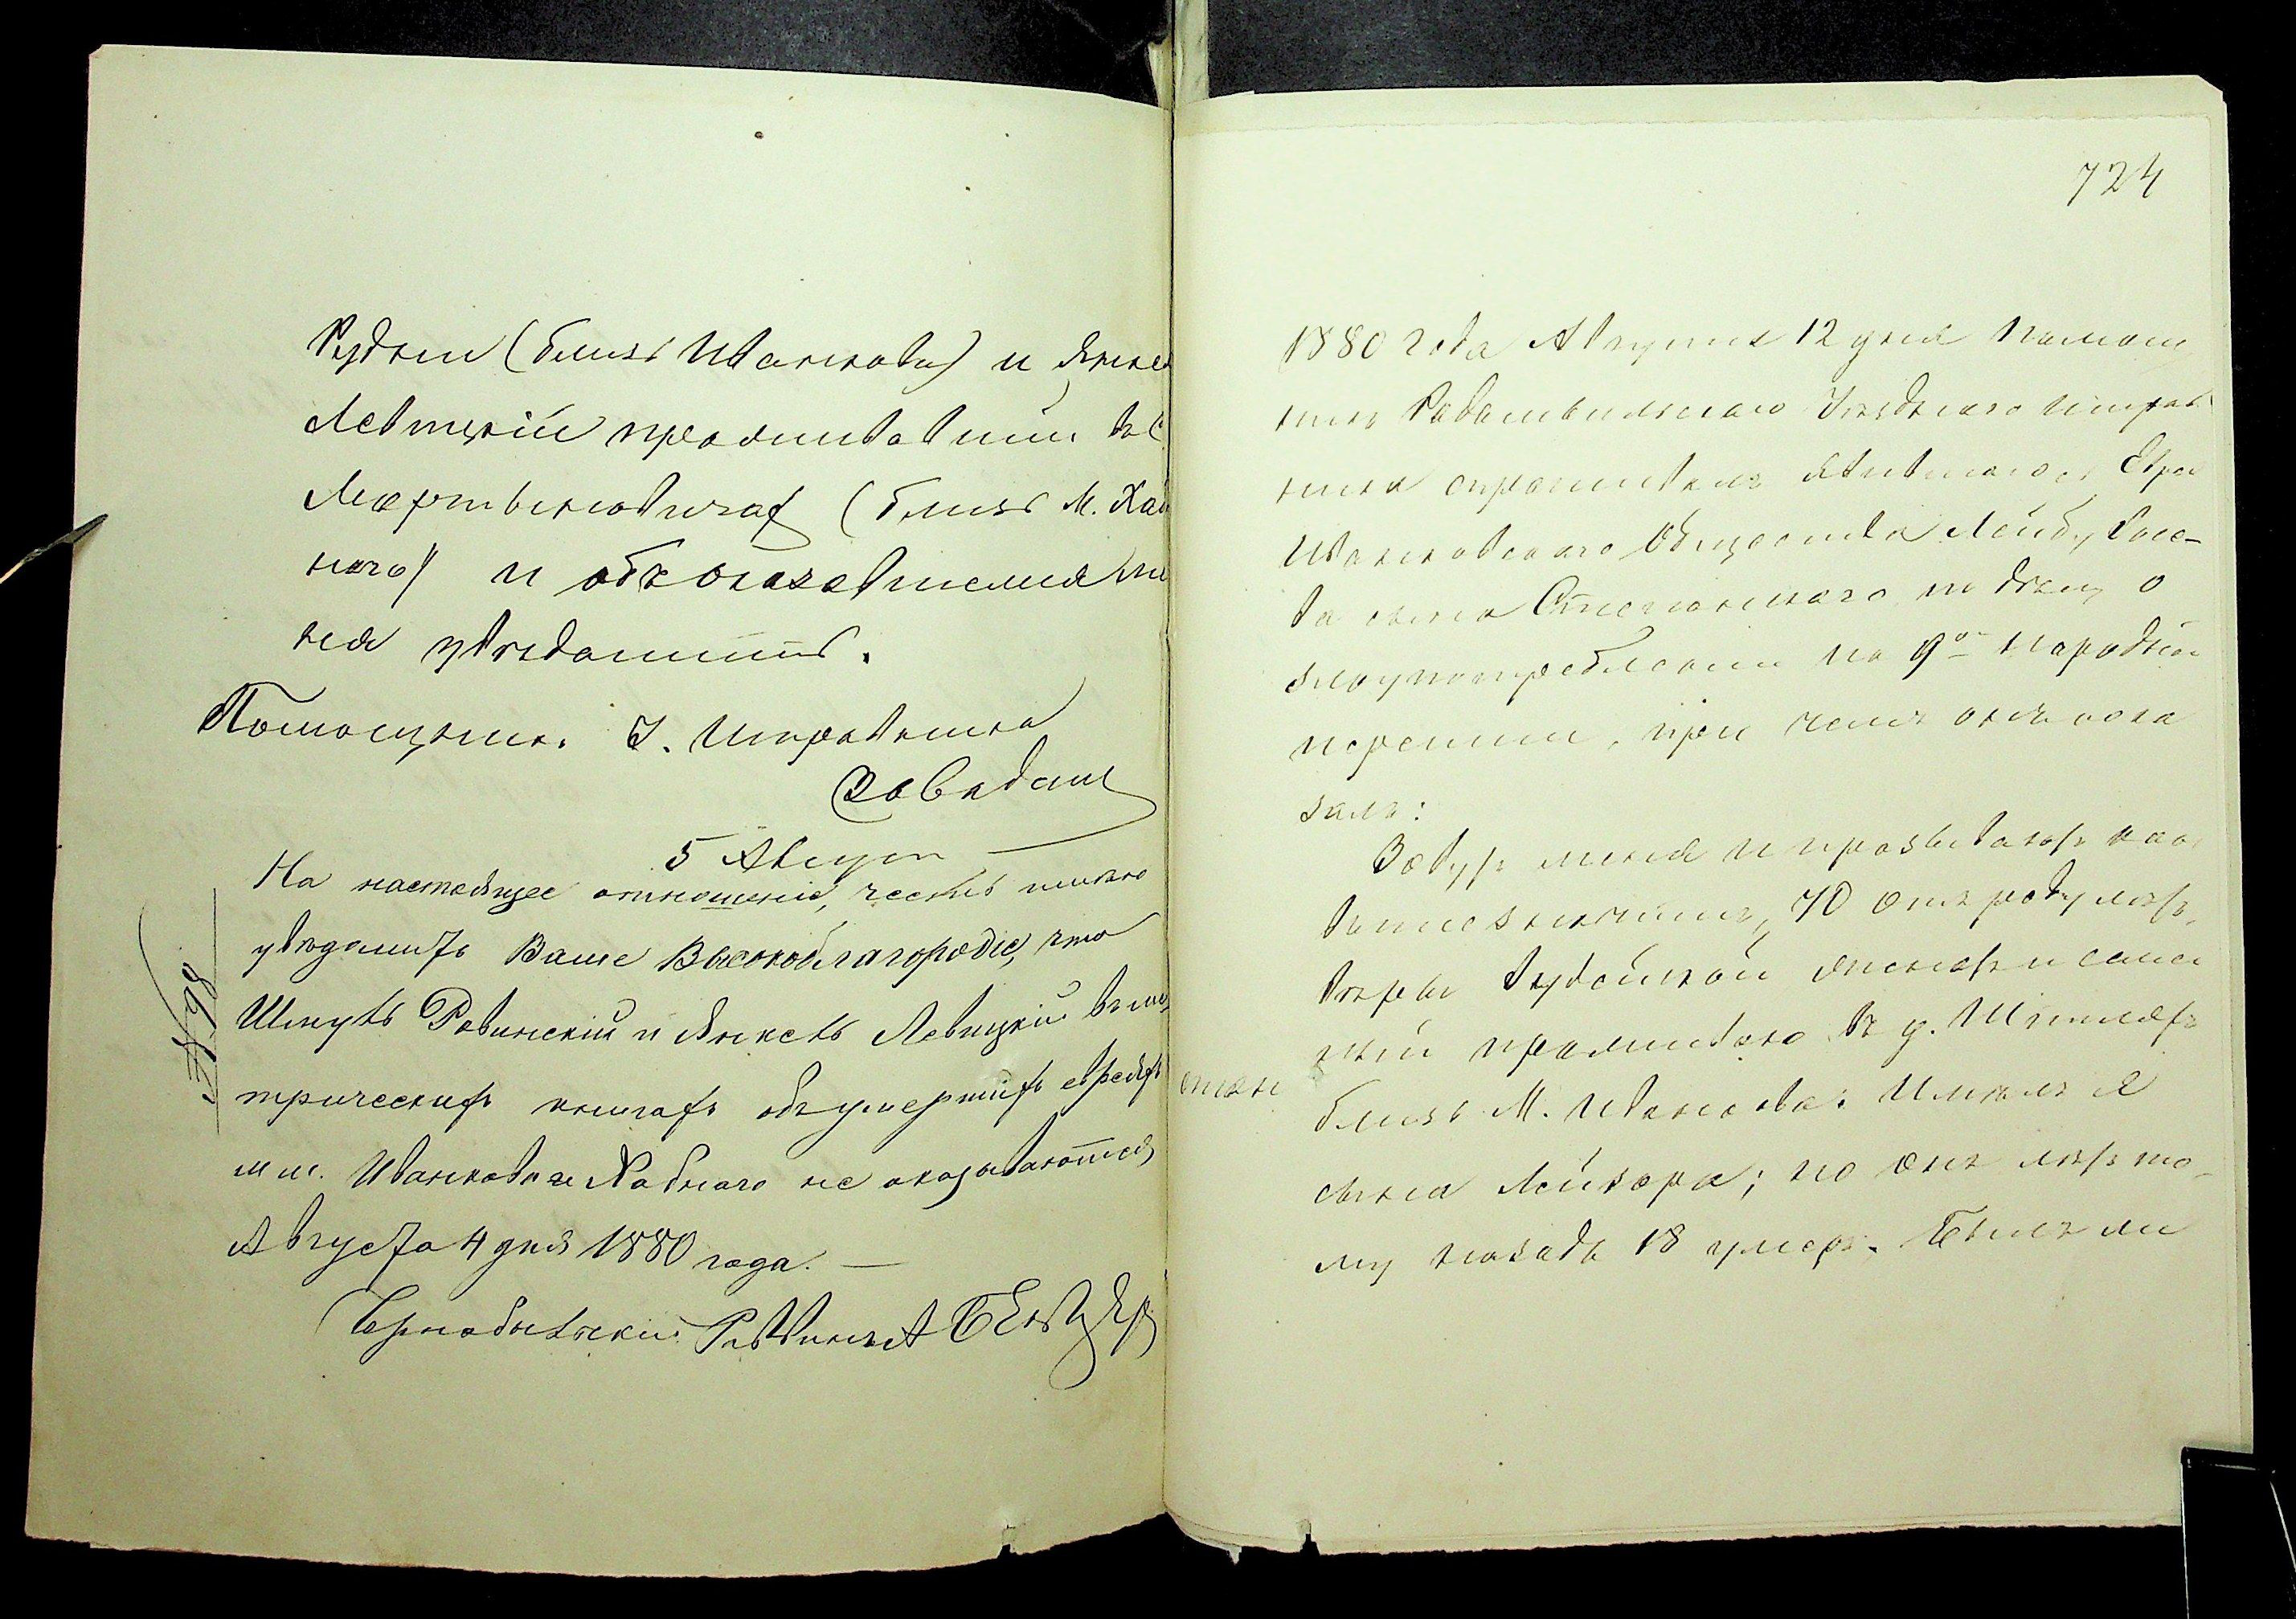 Рудни (близь Иванкова) и Янкель
Левицкій проживавшій въ с.
Мартыновичах (близь М. Хаб
наго) и объ оказавшемся ме
ня увѣдомить.
Помощникъ У. Исправника
5 Август
На настоящее отношеніе, честь имѣю
увѣдомить Ваше Высокоблагородіе, что
Шмуль Ровинскій и Янкель Левицкій въ ме
трическихъ книгахъ объ умершихъ евреяхъ
мм. Иванкова и Хабнаго не оказываются
Августа 4 дня 1880 года. —
Чернобыльскій Раввинъ А
№ 98
724
1880 года Августа 12 дня Помощ
никъ Радомысльскаго Уѣзднаго Исправ
ника спрашивалъ явившагося Евре
Иванковскаго Общества Лейбу
ва сына по дѣлу о
злоупотребленіи по 9ой народной
переписи, при чемъ онъ пока
залъ:
Зовутъ меня и прозываютъ как
выше значится, 70 отъ роду лѣтъ,
вѣры іудейской
ный проживаю въ д.
близь М. Иванкова. Имѣлъ я
сына Лейзера; но онъ лѣтъ то
му назадъ 18 умеръ. Былъ ли